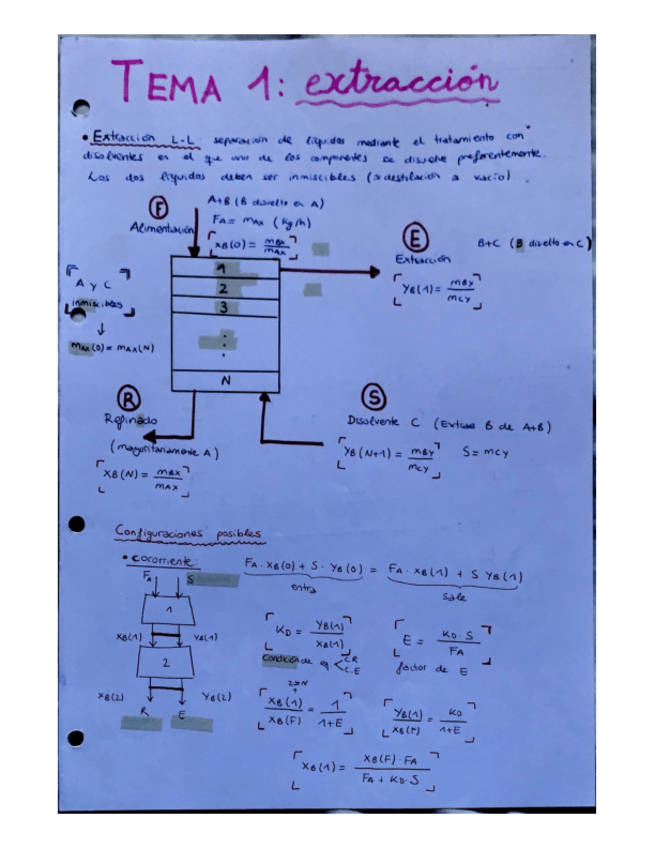 TEMA 1: extracción
• Extracción L-L: separación de líquidos mediante el tratamiento con
disolventes en el que uno de los componentes se disuelve preferentemente.
Los dos líquidos deben ser inmiscibles (≈ destilación a vacío).
F
Alimentación
A+B (B disuelto en A)
FA = mAX (kg/h)
XB(0) = mBX / mAX
E
Extracción
B+C (B disuelto en C)
YB(1) = mBY / mCY
A y C
inmiscibles
↓
mAX(0) = mAX(N)
1
2
3
⋮
N
R
Refinado
(mayoritariamente A)
XB(N) = mBX / mAX
S
Disolvente C (Extrae B de A+B)
YB(N+1) = mBY / mCY
S = mCY
Configuraciones posibles
• cocorriente:
FA · XB(0) + S · YB(0) = FA · XB(1) + S YB(1)
entra
sale
FA S
1
XB(1) YB(1)
2
XB(2) YB(2)
R E
KD = YB(1) / XB(1)
Condición de eq < C.R
C.E
E = KD · S / FA
factor de E
XB(1) / XB(F) = 1 / 1+E
YB(1) / XB(F) = KD / 1+E
XB(1) = XB(F) · FA / FA + KD · S